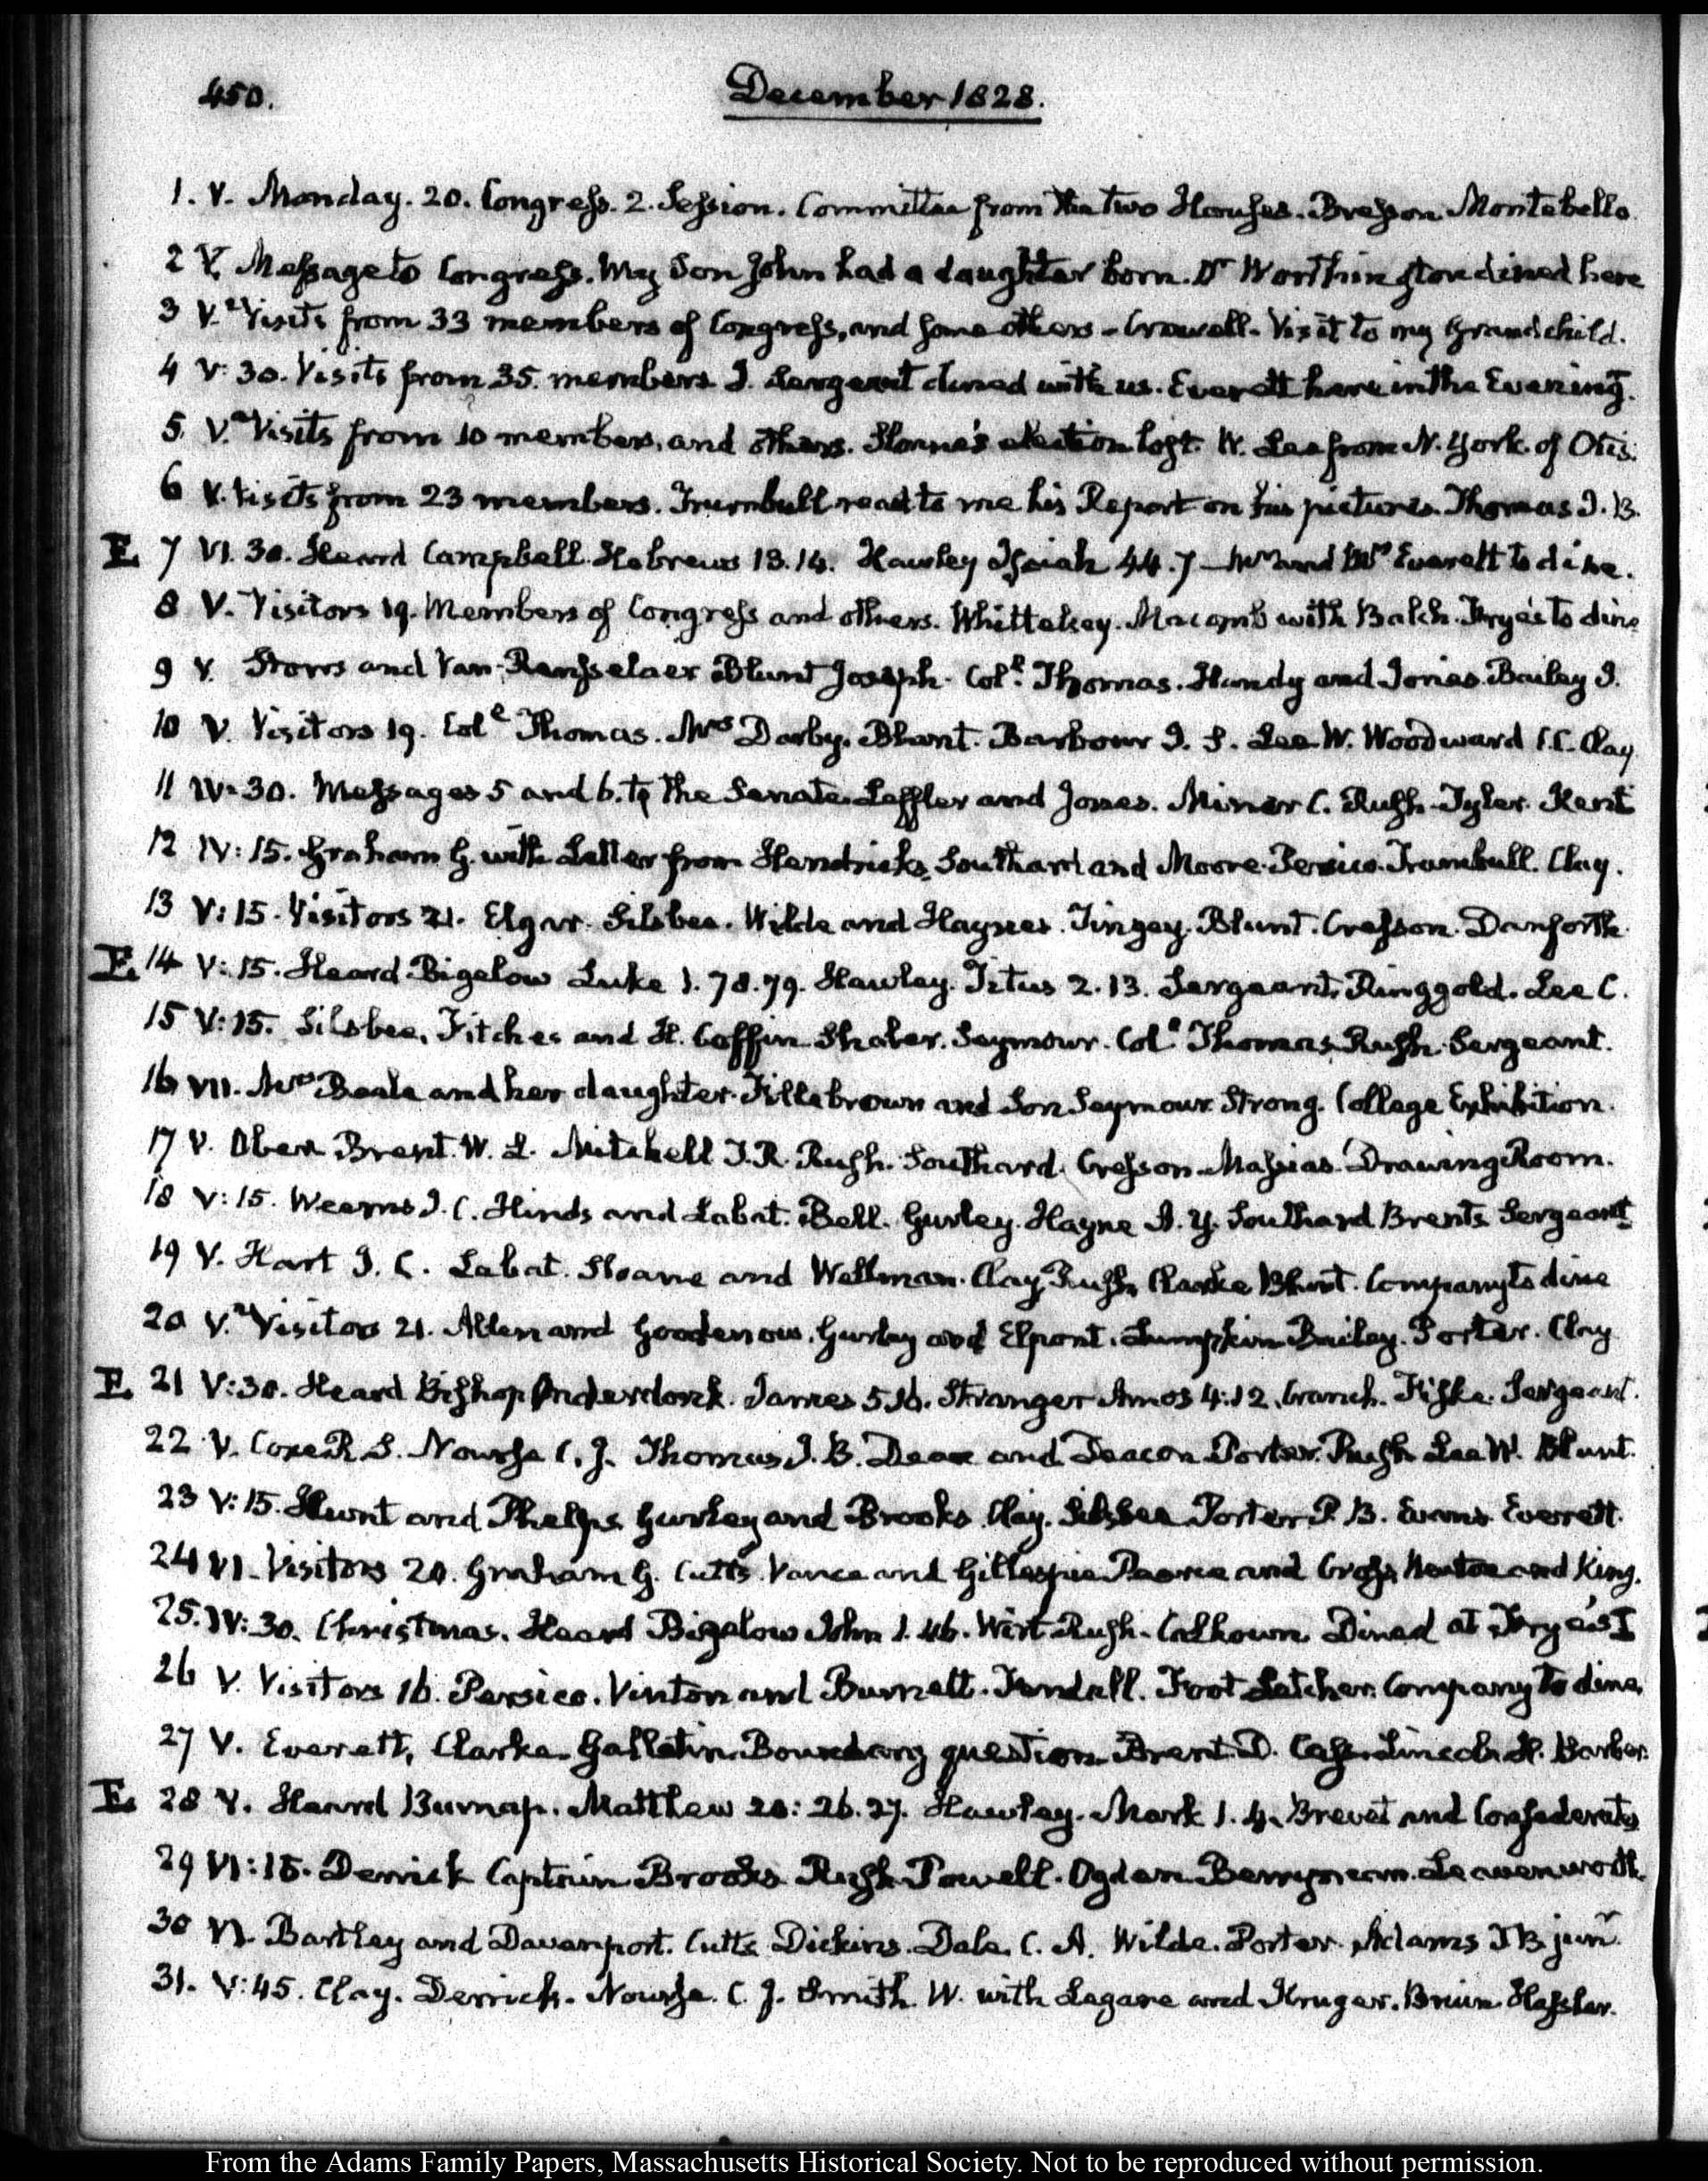 450.
December 1828.
1. V. Monday. 20. Congress. 2. Session. Committee from the two Houses. Bresson. Montebello
2 V. Message to Congress. My Son John had a daughter born. Dr Worthington dined here
3 V. Visits from 33 members of Congress, and some others – Crowell – Visit to my Grandchild.
4 V: 30. Visits from 35 members J. Sergeant dined with us. Everett here in the Evening.
5 V. Visits from 10 members, and others. election lost. W. Lee from N. York of Otis.
6 V. Visits from 23 members. Trumbull read to me his Report on his pictures. Thomas J. B.
E. 7 VI. 30. Heard Campbell. Hebrews 13.14. Hawley Isaiah 44.7 – Mr and Mrs Everett to dine.
8 V. Visitors 19. Members of Congress and others. Whittelsey. Macomb with Balch. Frye's to dine
9 V. Storrs and Van Rensselaer Blunt Joseph. Coll. Thomas. Handy and Jones. Bailey J.
10 V. Visitors 19. Coll Thomas. Mrs Darby. Blunt. Barbour J. S. Lee W. Woodward C.C. Clay
11 IV. 30. Messages 5 and 6. to the Senate. Leffler and Jones. Miner C. Rush. Tyler. Kent
12 IV: 15. Graham G. with Letter from Hendricks, Southard and Moore. Persico. Trumbull. Clay.
13 V: 15. Visitors 21. Elgar. Silsbee. Wilde and Haynes. Tingey. Blunt. Cresson. Danforth.
E. 14 V: 15. Heard Bigelow Luke 1. 78.79. Hawley. Titus 2.13. Sergeant, Ringgold. Lee C.
15 V: 15. Silsbee, Fitches and H. Coffin. Shaler. Seymour. Coll Thomas. Rush. Sergeant.
16 VII. Mrs Beale and her daughter. Fillebrown and Son Seymour. Strong. College Exhibition.
17 V. Ober. Brent. W. L. Mitchell T. R. Rush. Southard. Cresson. Massias. Drawing Room.
18 V: 15. Weems J. C. Hinds and Labat. Bell. Gurley. Hayne A. Y. Southard Brents Sergeant
19 V. Hart J. C. Labat. Sloane and Wellman. Clay, Rush, Clarke Blunt. Company to dine
20 V. Visitors 21. Allen and Goodenow. Gurley and Lumpkin Bailey. Porter. Clay
E. 21 V: 30. Heard Bishop Onderdonk. James 5.16. Stranger Amos 4:12. Branch. Fiske. Sergeant.
22 V. Coxe R. S. Nourse C. J. Thomas J. B. Deac and Deacon Porter. Rush Lee W. Blunt.
23 V: 15. Hunt and Phelps. Gurley and Brooks. Clay. Silsbee Porter P. B. Evans. Everett.
24 VI. Visitors 20. Graham G. Cutts. Vance and Gillespie Pearce and Cross, Newton and King.
25. IV: 30. Christmas. Heard Bigelow John 1. 46. Wirt. Rush. Calhoun. Dined at Frye's T
26 V. Visitors 16. Persico. Vinton and Burnett. Kendall. Foot Letcher. Company to dine
27 V. Everett, Clarke. Gallatin. Boundary question. Brent. D. Cass. Lincoln. H. Barber.
E. 28 V. Heard Burnap. Matthew 20: 26.27. Hawley. Mark 1. 4. Brevet and Confederates
29 VI: 15. Derrick Captain Brooks. Rush Powell. Ogden. Berryman. Leavenworth.
30 VI. Bartley and Davenport. Cutts. Dickins. Dale. C. A. Wilde. Porter. Adams T B junr
31. V: 45. Clay. Derrick. Nourse. C. J. Smith. W. with Legare and Kruger. Brun. Hassler.
From the Adams Family Papers, Massachusetts Historical Society. Not to be reproduced without permission.